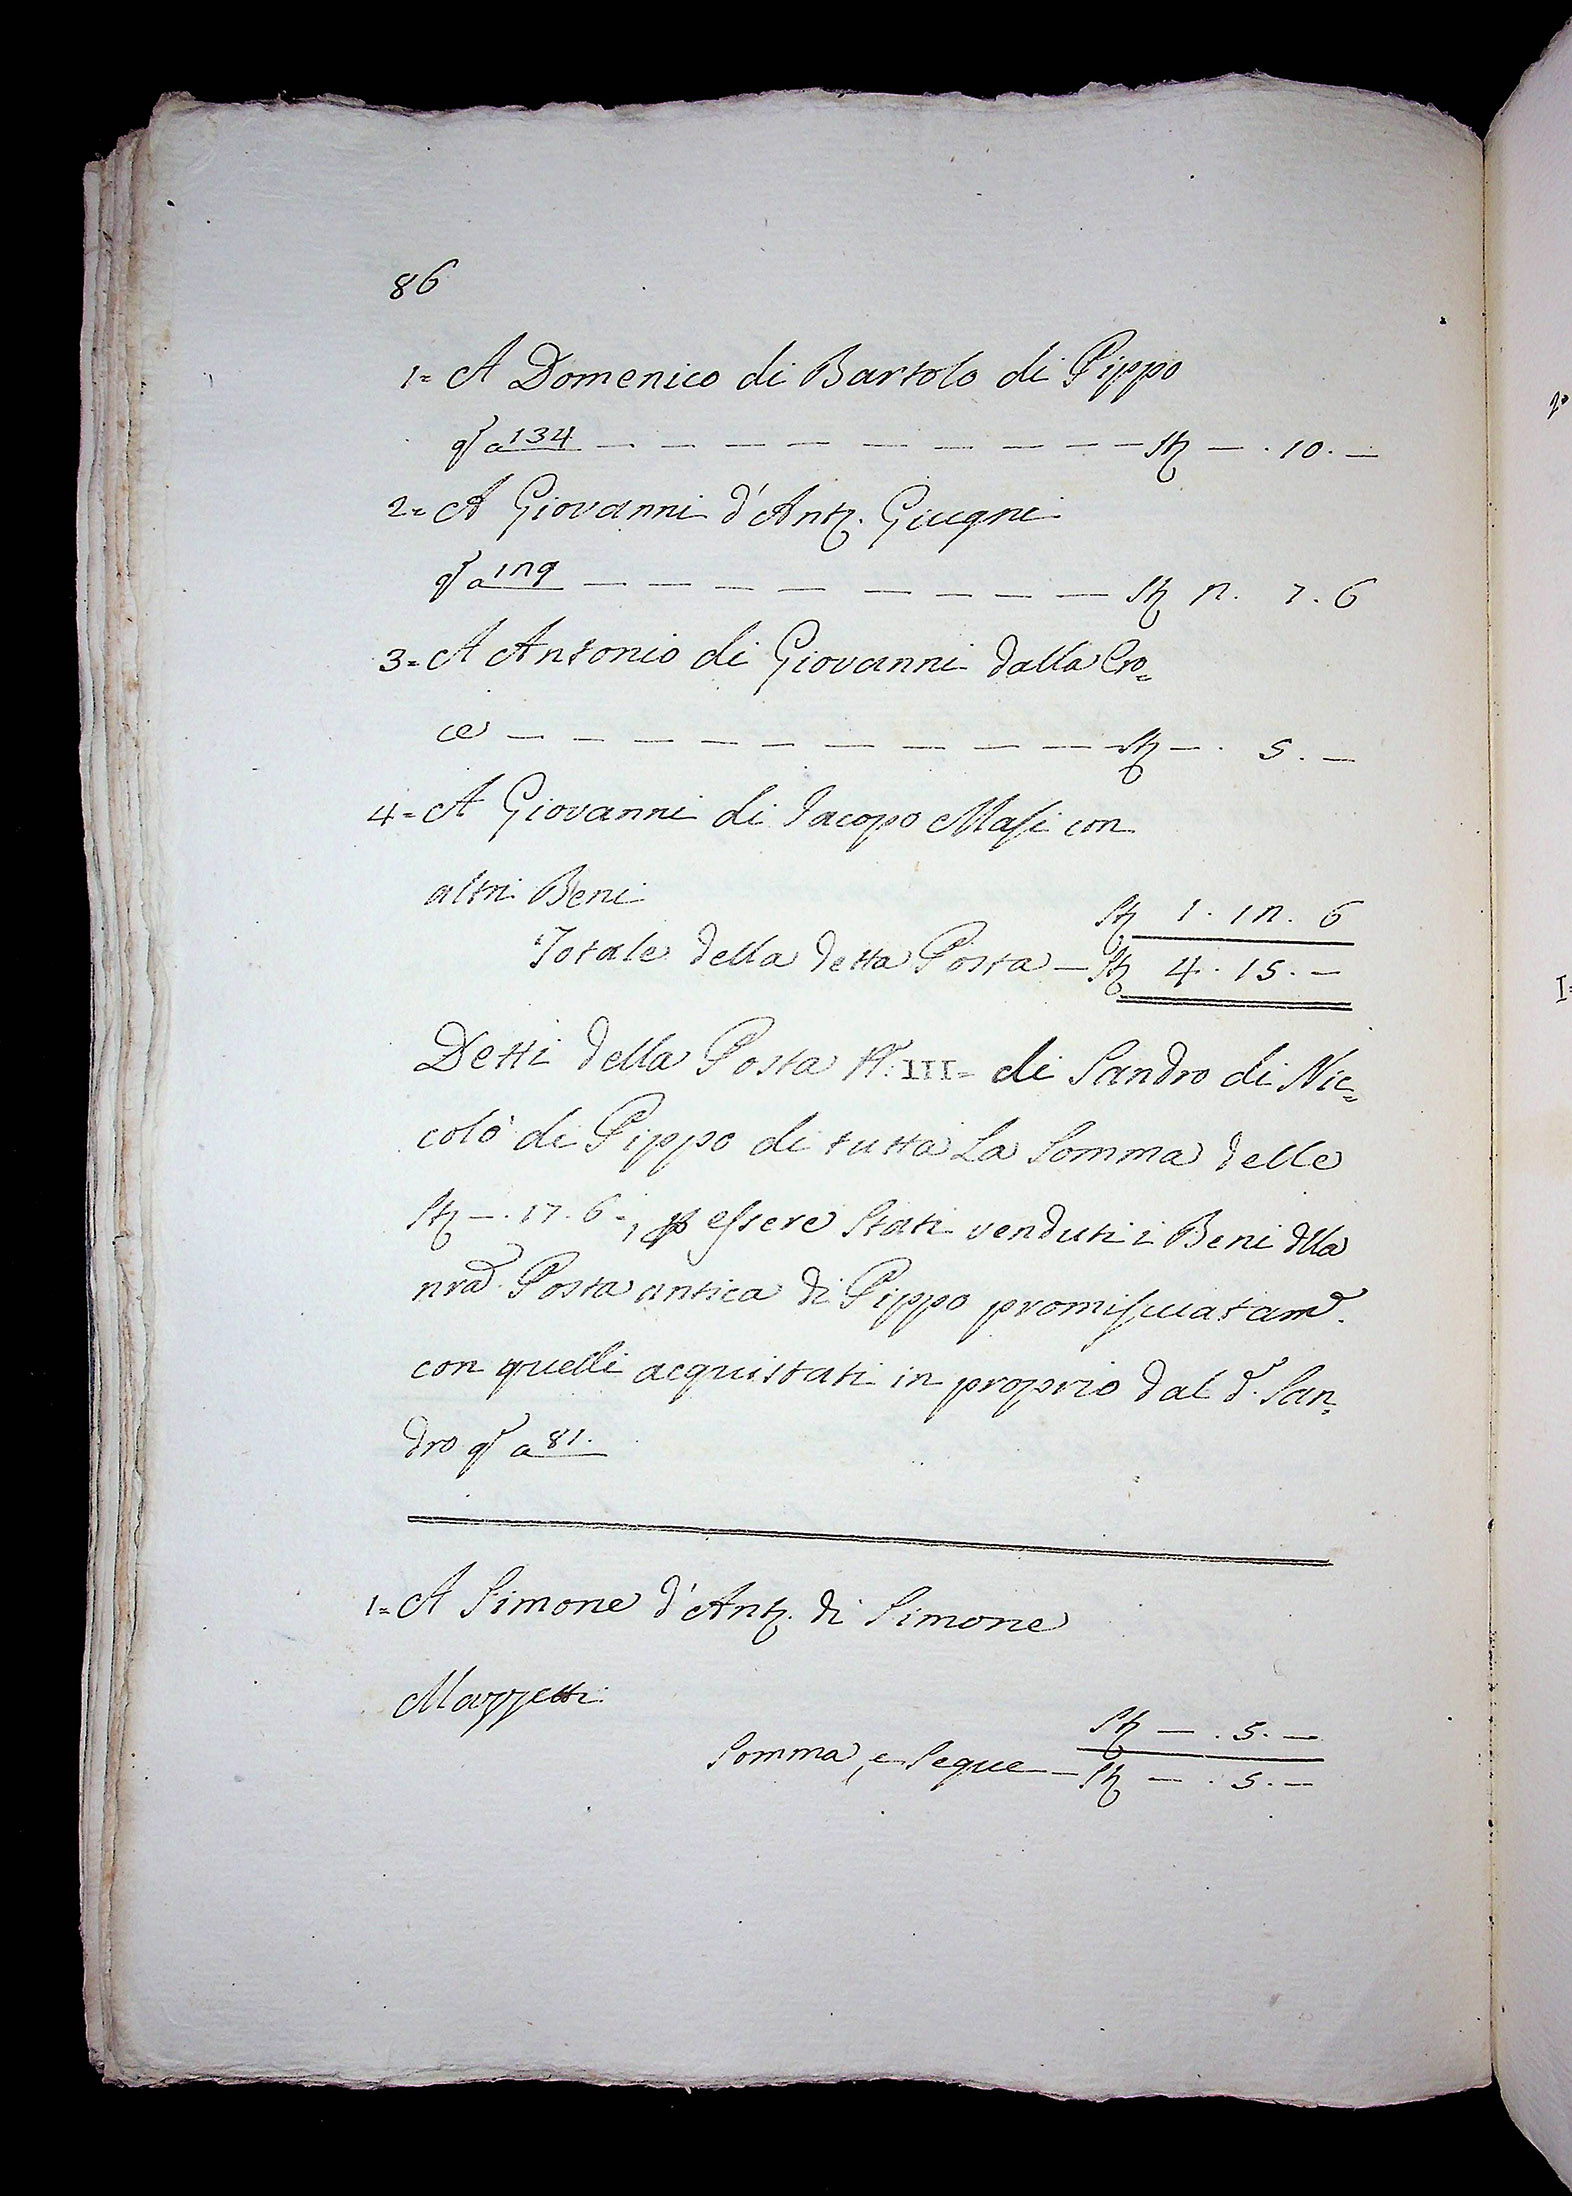 86
1= A Domenico di Bartolo di Pippo
qr a 134 — — — — — — — — — St — . 10. —
2= A Giovanni d'Ant. Giugni
qr a 129 — — — — — — — — St 2. 7. 6
3= A Antonio di Giovanni dalla Cro=
ce — — — — — — — — — — St — . 5. —
4= A Giovanni di Jacopo Masi con
altri Beni St 1. 12. 6
Totale della detta Posta — St 4. 15. —
Detti della Posta N. III= di Sandro di Nic=
colò di Pippo di tutta La Somma delle
St — . 17. 6 =, p essere Stati venduti i Beni dlla
nrad. Posta antica di Pippo promiscuatame.
con quelli acquistati in proprio dal d. San=
dro qr a 81.
1= A Simone d'Ant. di Simone
Mazzetti St — . 5. —
Somma, e Segue — St — . 5. —
p
I=